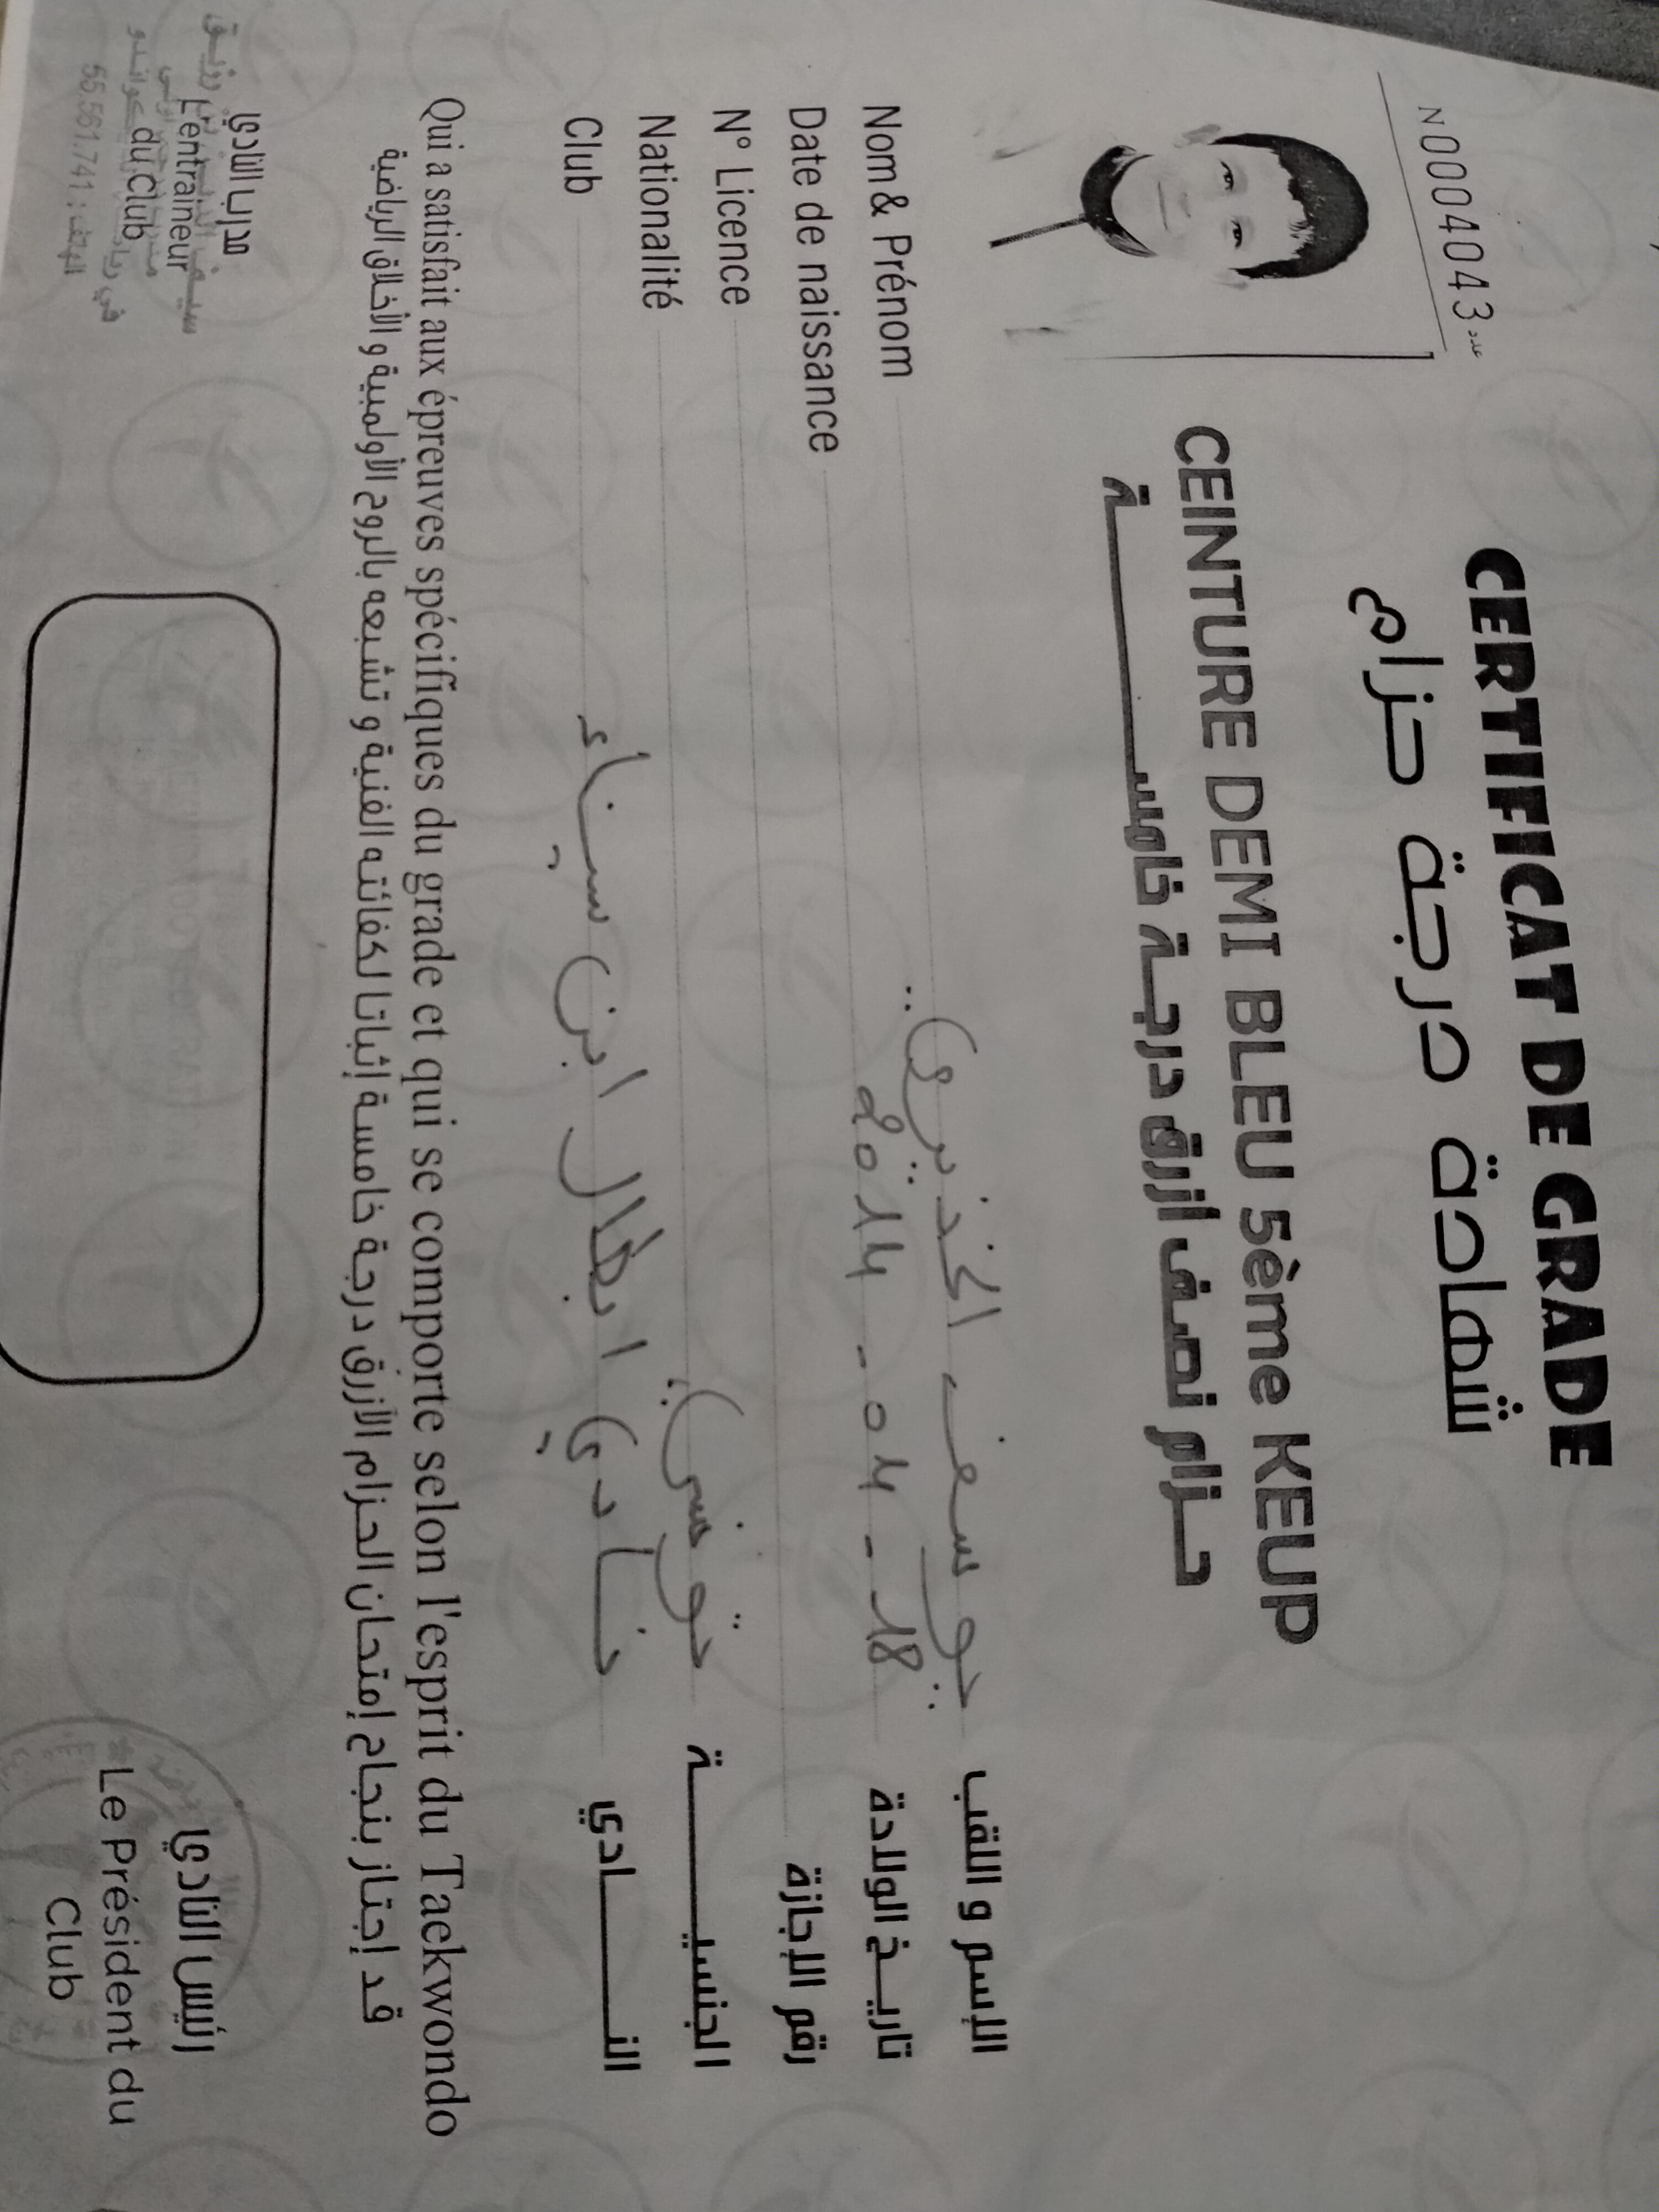 N0004043 عدد
CERTIFICAT DE GRADE
شهادة درجة حزام
CEINTURE DEMI BLEU 5ème KEUP
حــزام نصف أزرق درجــة خامســــة
Nom & Prénom يوسف الخذيري الإسم و اللقب
Date de naissance 2014 - 04 - 18 تاريــخ الولادة
N° Licence رقم الإجازة
Nationalité تونسي الجنسيــــة
Club نادي ابطال ابن سيناء النــــادي
Qui a satisfait aux épreuves spécifiques du grade et qui se comporte selon l'esprit du Taekwondo
قد إجتاز بنجاح إمتحان الحزام الأزرق درجة خامسة إثباتا لكفائته الفنية و تشبعه بالروح الأولمبية و الأخلاق الرياضية
مدرب النادي
L'entraineur
du Club
الهاتف : 55.561.741
رئيس النادي
Le Président du
Club